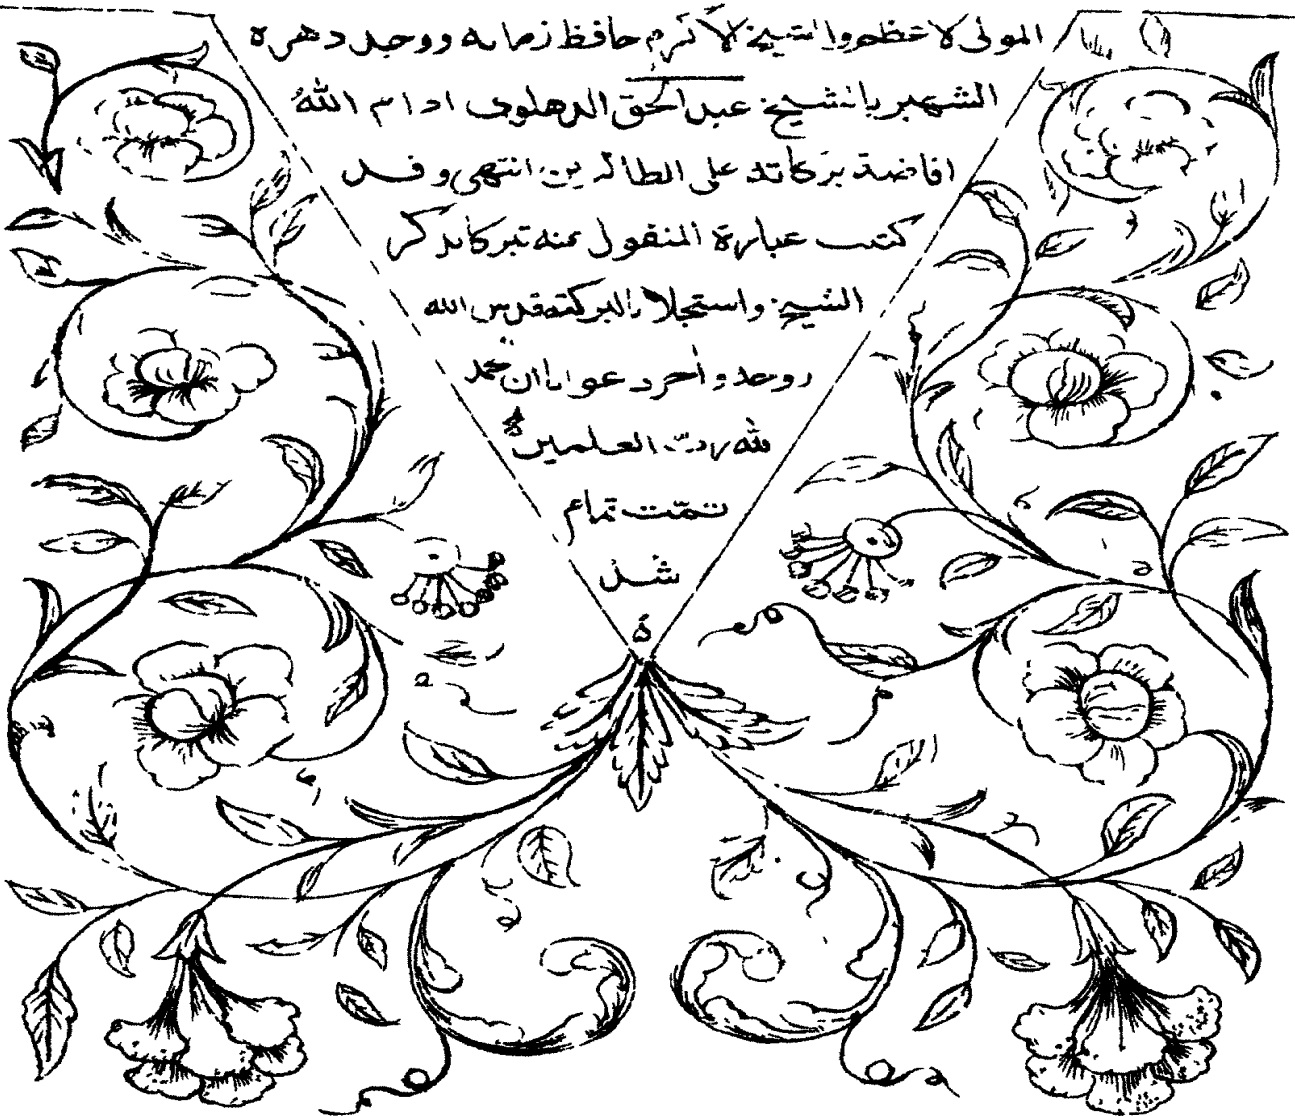 المولى الاعظم والشيخ الاكرم حافظ زمانه ووحيد دهره
الشهير بالشيخ عبد الحق الدهلوى ادام الله
افاضة بركاته على الطالبين انتهى وقد
كتبت عبارة المنقول عنه تبركا بذكر
الشيخ واستجلابا لبركته قدس الله
روحه وآخر دعوانا ان الحمد
لله رب العلمين
تمّت تمام
شد